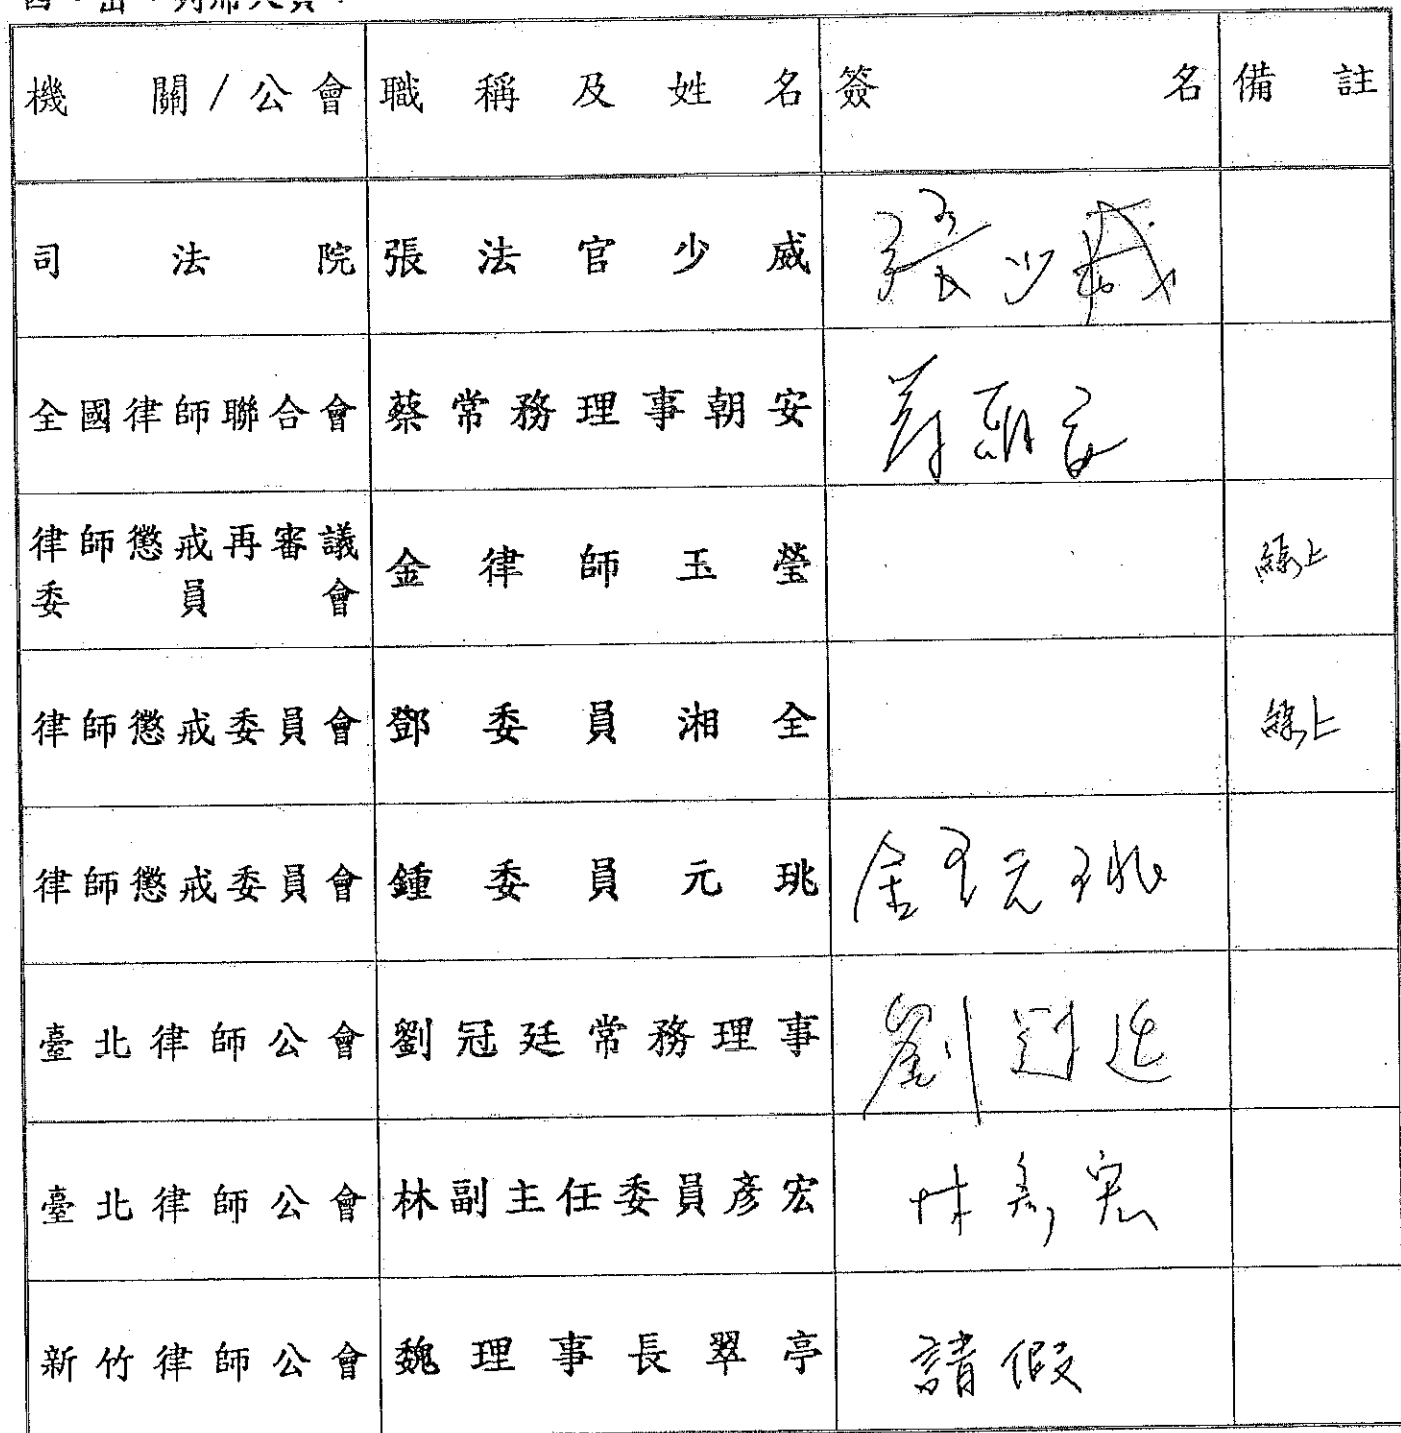 四、出、列席人員：
機關/公會 職稱及姓名 簽名 備註
司法院 張法官少威 張少威
全國律師聯合會 蔡常務理事朝安 蔡朝安
律師懲戒再審議
委員會 金律師玉瑩 線上
律師懲戒委員會 鄧委員湘全 線上
律師懲戒委員會 鍾委員元珧 鍾元珧
臺北律師公會 劉冠廷常務理事 劉冠廷
臺北律師公會 林副主任委員彥宏 林彥宏
新竹律師公會 魏理事長翠亭 請假